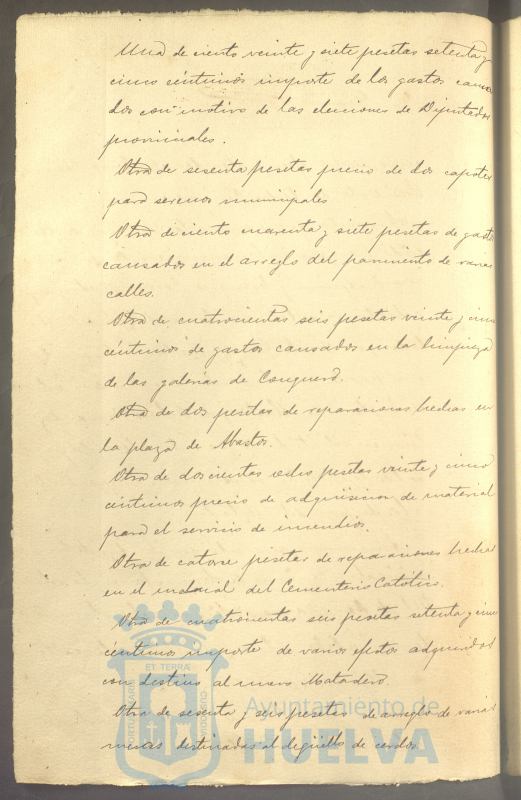 Una de ciento veinte y siete pesetas setenta y
cinco céntimos importe de los gastos causa
dos con motivo de las elecciones de Diputados
provinciales.
Otra de sesenta pesetas precio de dos capotes
para serenos municipales
Otra de ciento cuarenta y siete pesetas de gastos
causados en el arreglo del pavimento de varias
calles.
Otra de cuatrocientas seis pesetas veinte y cinco
céntimos de gastos causados en la limpieza
de las galerías de Conquero.
Otra de dos pesetas de reparaciones hechas en
la plaza de Abastos.
Otra de doscientas ocho pesetas veinte y cinco
céntimos precio de adquisicion de material
para el servicio de incendios.
Otra de catorce pesetas de reparaciones hechas
en el del Cementerio Católico.
Otra de cuatrocientas seis pesetas setenta y cinco
céntimos importe de varios efectos adquiridos
con destino al nuevo Matadero.
Otra de sesenta y seis pesetas de arreglo de varias
mesas destinadas al degüello de cerdos.
ET TERRA
PORTUS MARIS
CUSTODIO
Ayuntamiento de
HUELVA